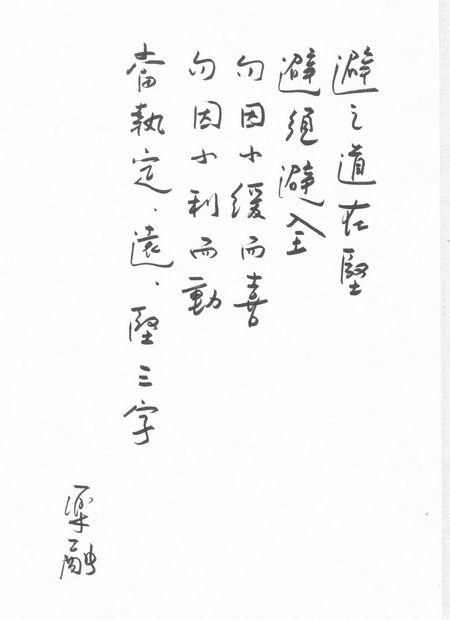 避之道在堅
避須避全
勿因小緩而喜
勿因小利而動
當執定、遠、堅三字
梁融